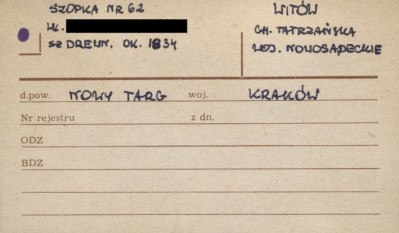 SZOPKA NR 62
WŁ.
SZ DREWN. OK. 1834
WITÓW
GM. TATRZAŃSKA
WOJ. NOWOSĄDECKIE
d.pow. NOWY TARG woj. KRAKÓW
Nr rejestru z dn.
ODZ
BDZ